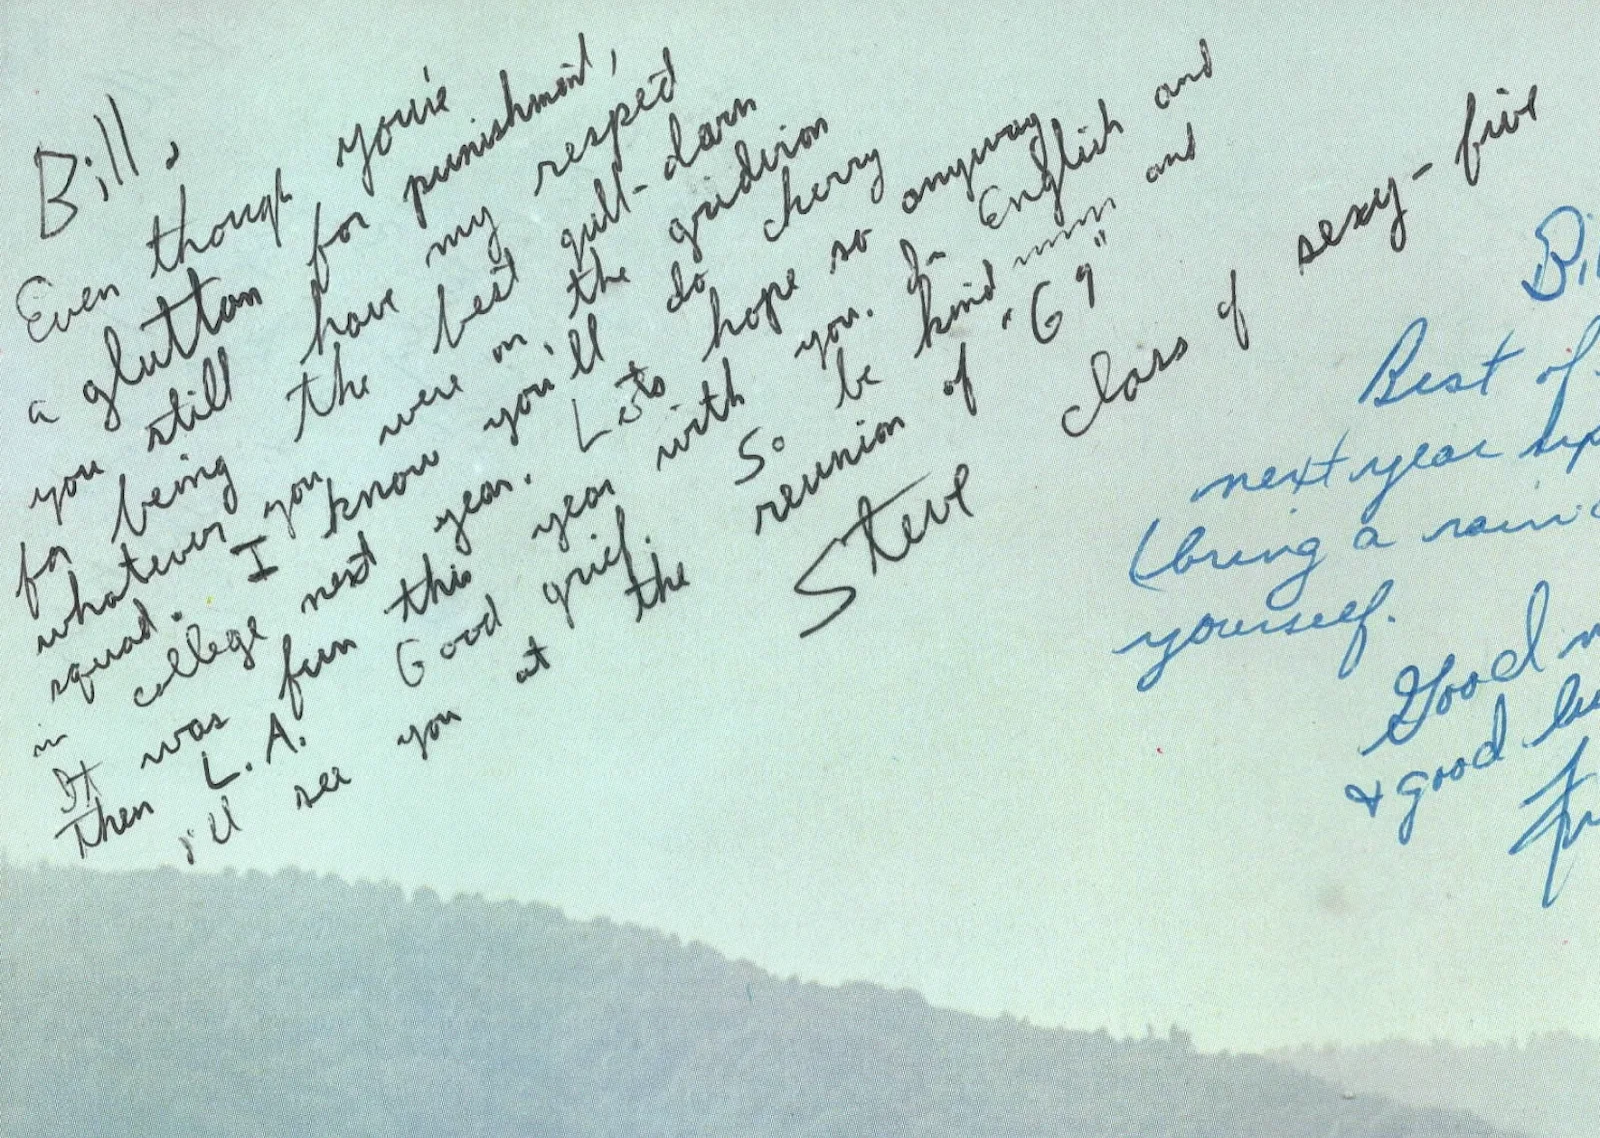 Bill,
Even though you're
a glutton for punishment,
you still have my respect
for being the best gull-darn
whatever you were on the gridiron
squad. I know you'll do cherry
in college next year. Lets hope so anyway
It was fun this year with you. In English and
then L.A. Good grief. So be kind and
i'll see you at the reunion of "69"
Steve class of sexy-five
Best of
next year
(bring a
yourself.
Good
& good